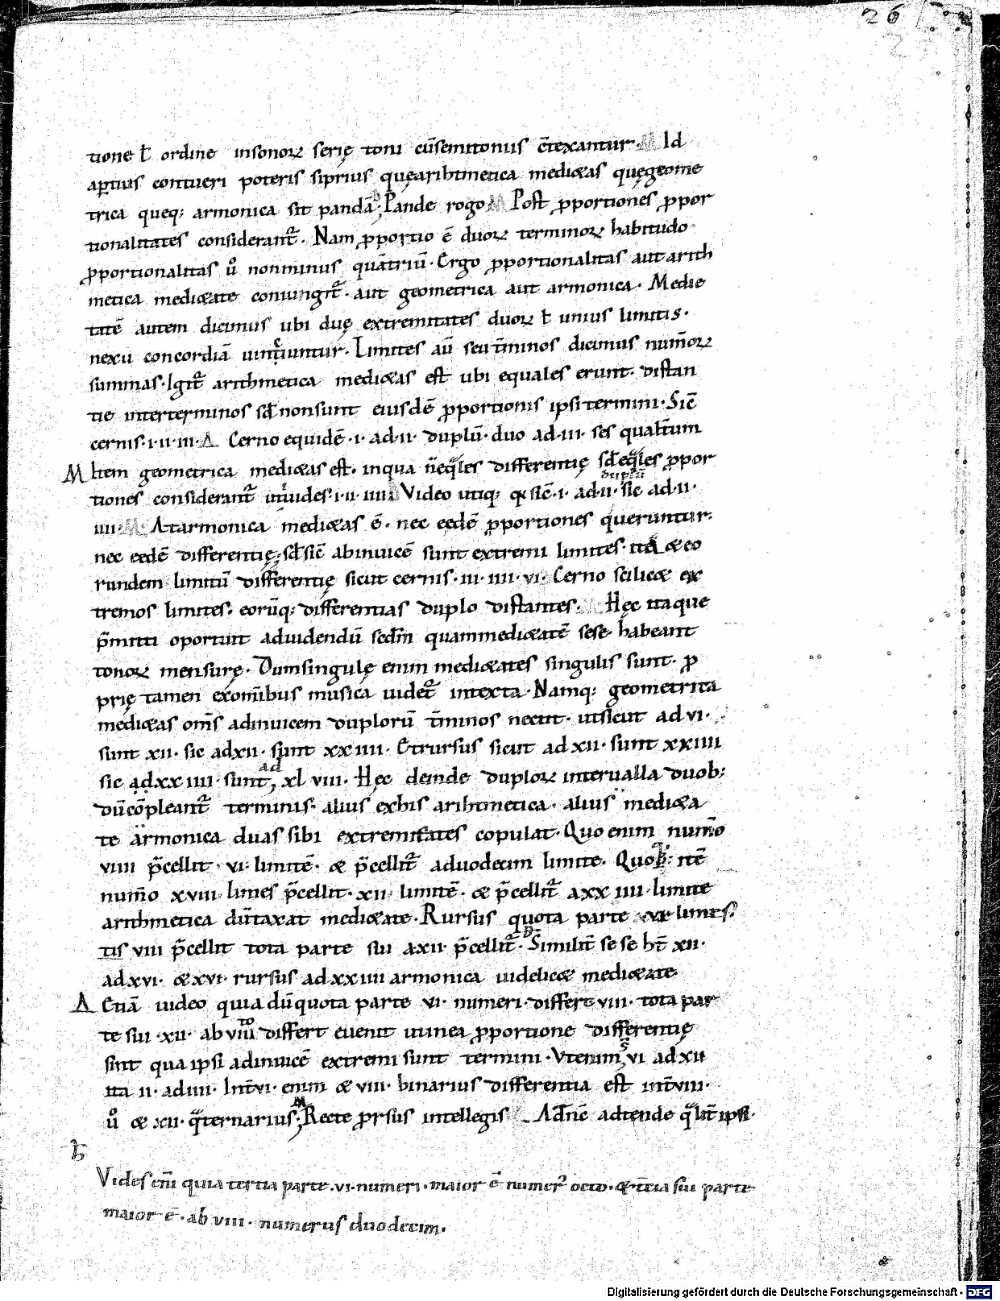 26
tione ł ordine insonoꝝ serię toni cūsemitoniis c̄texantur. M Id
aꝑtius contueri poteris siprius quęarithmetica medietas quęgeome
trica queq; armonica sit pandā. D Pande rogo M Post ꝓportiones ꝓpor
tionalitates considerant᷑. Nam ꝓportio ē duoꝝ terminoꝝ habitudo
ꝓportionalitas uͦ nonminus quātriū. Ergo ꝓportionalitas aut arith
metica medietate coniungit᷑. aut geometrica aut armonica. Medie
tatē autem dicimus ubi duę extremitates duoꝝ ł unius limitis.
nexu concordiā uinciuntur. Limites aū seu t̄minos dicimus num̄oꝝ
summas. Igit᷑ arithmetica medietas est ubi equales erunt. distan
tie interterminos sꝫ nonsunt eiusdē ꝓportionis ipsi termini. Sic̄
cernis. i. ii. iii. Δ Cerno equidē. i. ad. ii. duplū. duo ad. iii. ses qualt̄um
M Item geometrica medietas est. inqua n̄eq̄les differentię sꝫ eq̄les ꝓpor
tiones considerant᷑ utͥuides. i. ii. iiii. Δ Video utiq; q sic̄. i. ad. ii. duplū sic ad. ii.
iiii. M. Atarmonica medietas ē. nec eędē ꝓportiones queruntur.
nec eędē differentię. sꝫ sic̄ abinuicē sunt extremi limites. ita & eo
rundem limitū differentię sicut cernis. iii. iiii. vi. Cerno scilicet ex
tremos limites. eorūq; differentias duplo distantes. Hęc itaque
p̄mitti oportuit aduidendū sedm̄ quammedietatē sese habeant
tonoꝝ mensurę. Dumsingulę enim medietates singulis sunt. ꝓ
prię tamen exom̄ibus musica uidet᷑ intexta. Namq; geometrica
medietas om̄s adinuicem duplorū t̄minos nectit. utsicut ad vi.
sunt xii. sic adxii. sunt xxiiii. Etrursus sicut ad xii. sunt xxiiii
sic adxxiiii. sunt, ad xlviii. Hęc deinde duploꝝ interualla duob;
dūc̄opleant᷑ terminis. alius exhis arihtmetica. alius medieta
te armonica duas sibi extremitates copulat. Quo enim num̄o
viiii p̄cellit. vi. limitē. & p̄cellit᷑ aduodecim limite. Quob; itē
num̄o xviii limes p̄cellit. xii. limitē. & p̄cellit᷑ axxiiii. limite
arithmetica dūtaxat medietate. Rursus quota parte vi. limes.
tis viii p̄cellit tota parte sui axii. p̄cellit᷑. D Similit̄ se se ht̄ xii.
adxvi. & xvi. rursus adxxiiii armonica uidelicet medietate
Δ Etiā uideo quia dūquota parte vi. numeri. differt viii. tota par
te sui. xii. ab viiito differt euenit utinea ꝓportione differentię
sint qua ipsi adinuicē extremi sunt termini. Vtenim s vi adxii
ita ii. adiiii. Int̄vi. enim & viii. binarius differentia est int̄viii.
uͦ & xii. q̄ternarius; M Recte ꝓrsus intellegis Δ Adnc̄ adtende q̄lit̄ ipsi.
h
Vides em̄ quia tertia parte. vi. numeri. maior ē numer᷒ octo. & t̄tia sui parte
maior ē. ab viii. numerus duodecim.
Digitalisierung gefördert durch die Deutsche Forschungsgemeinschaft - DFG